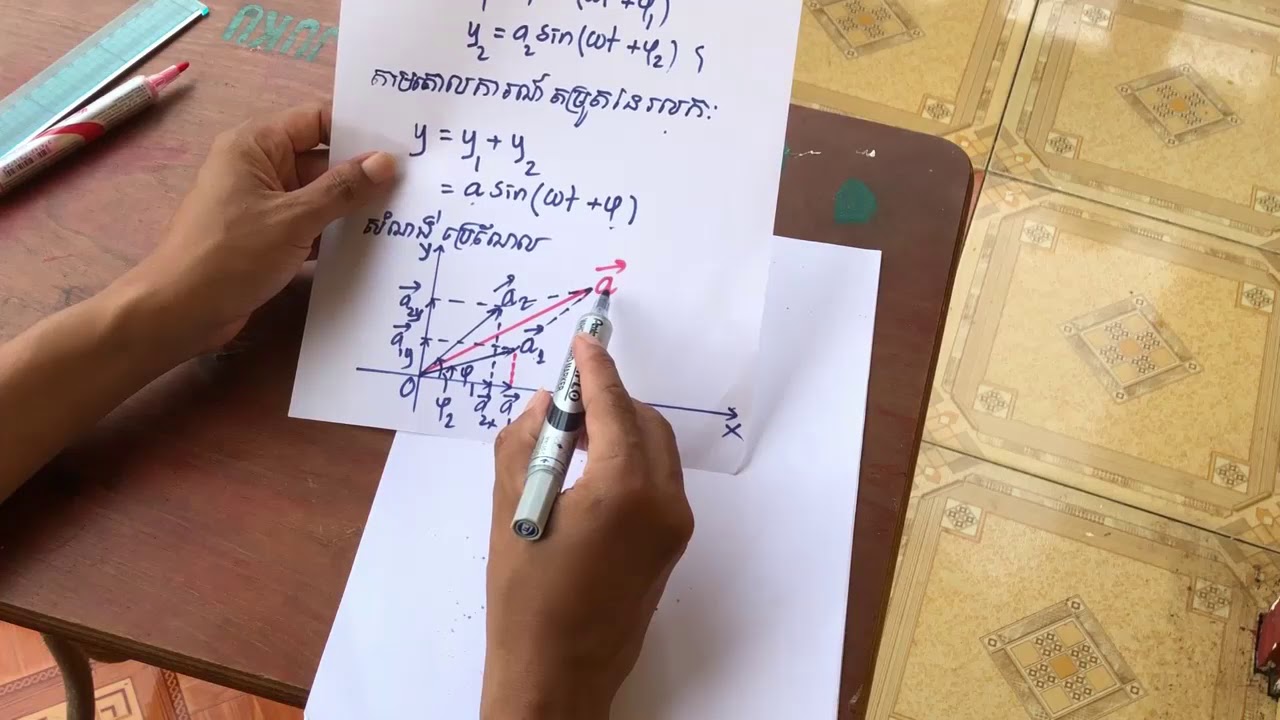 y₂ = a₂ sin(ωt + φ₂) ។
តាមគោលការណ៍តម្រួតនៃរលក:
y = y₁ + y₂
= a sin(ωt + φ)
សំណង់ប្រេណែល
y
a⃗
a⃗₂y a⃗₂
a⃗₁y a⃗₁
O φ₁
φ₂ a⃗₂ₓ
x